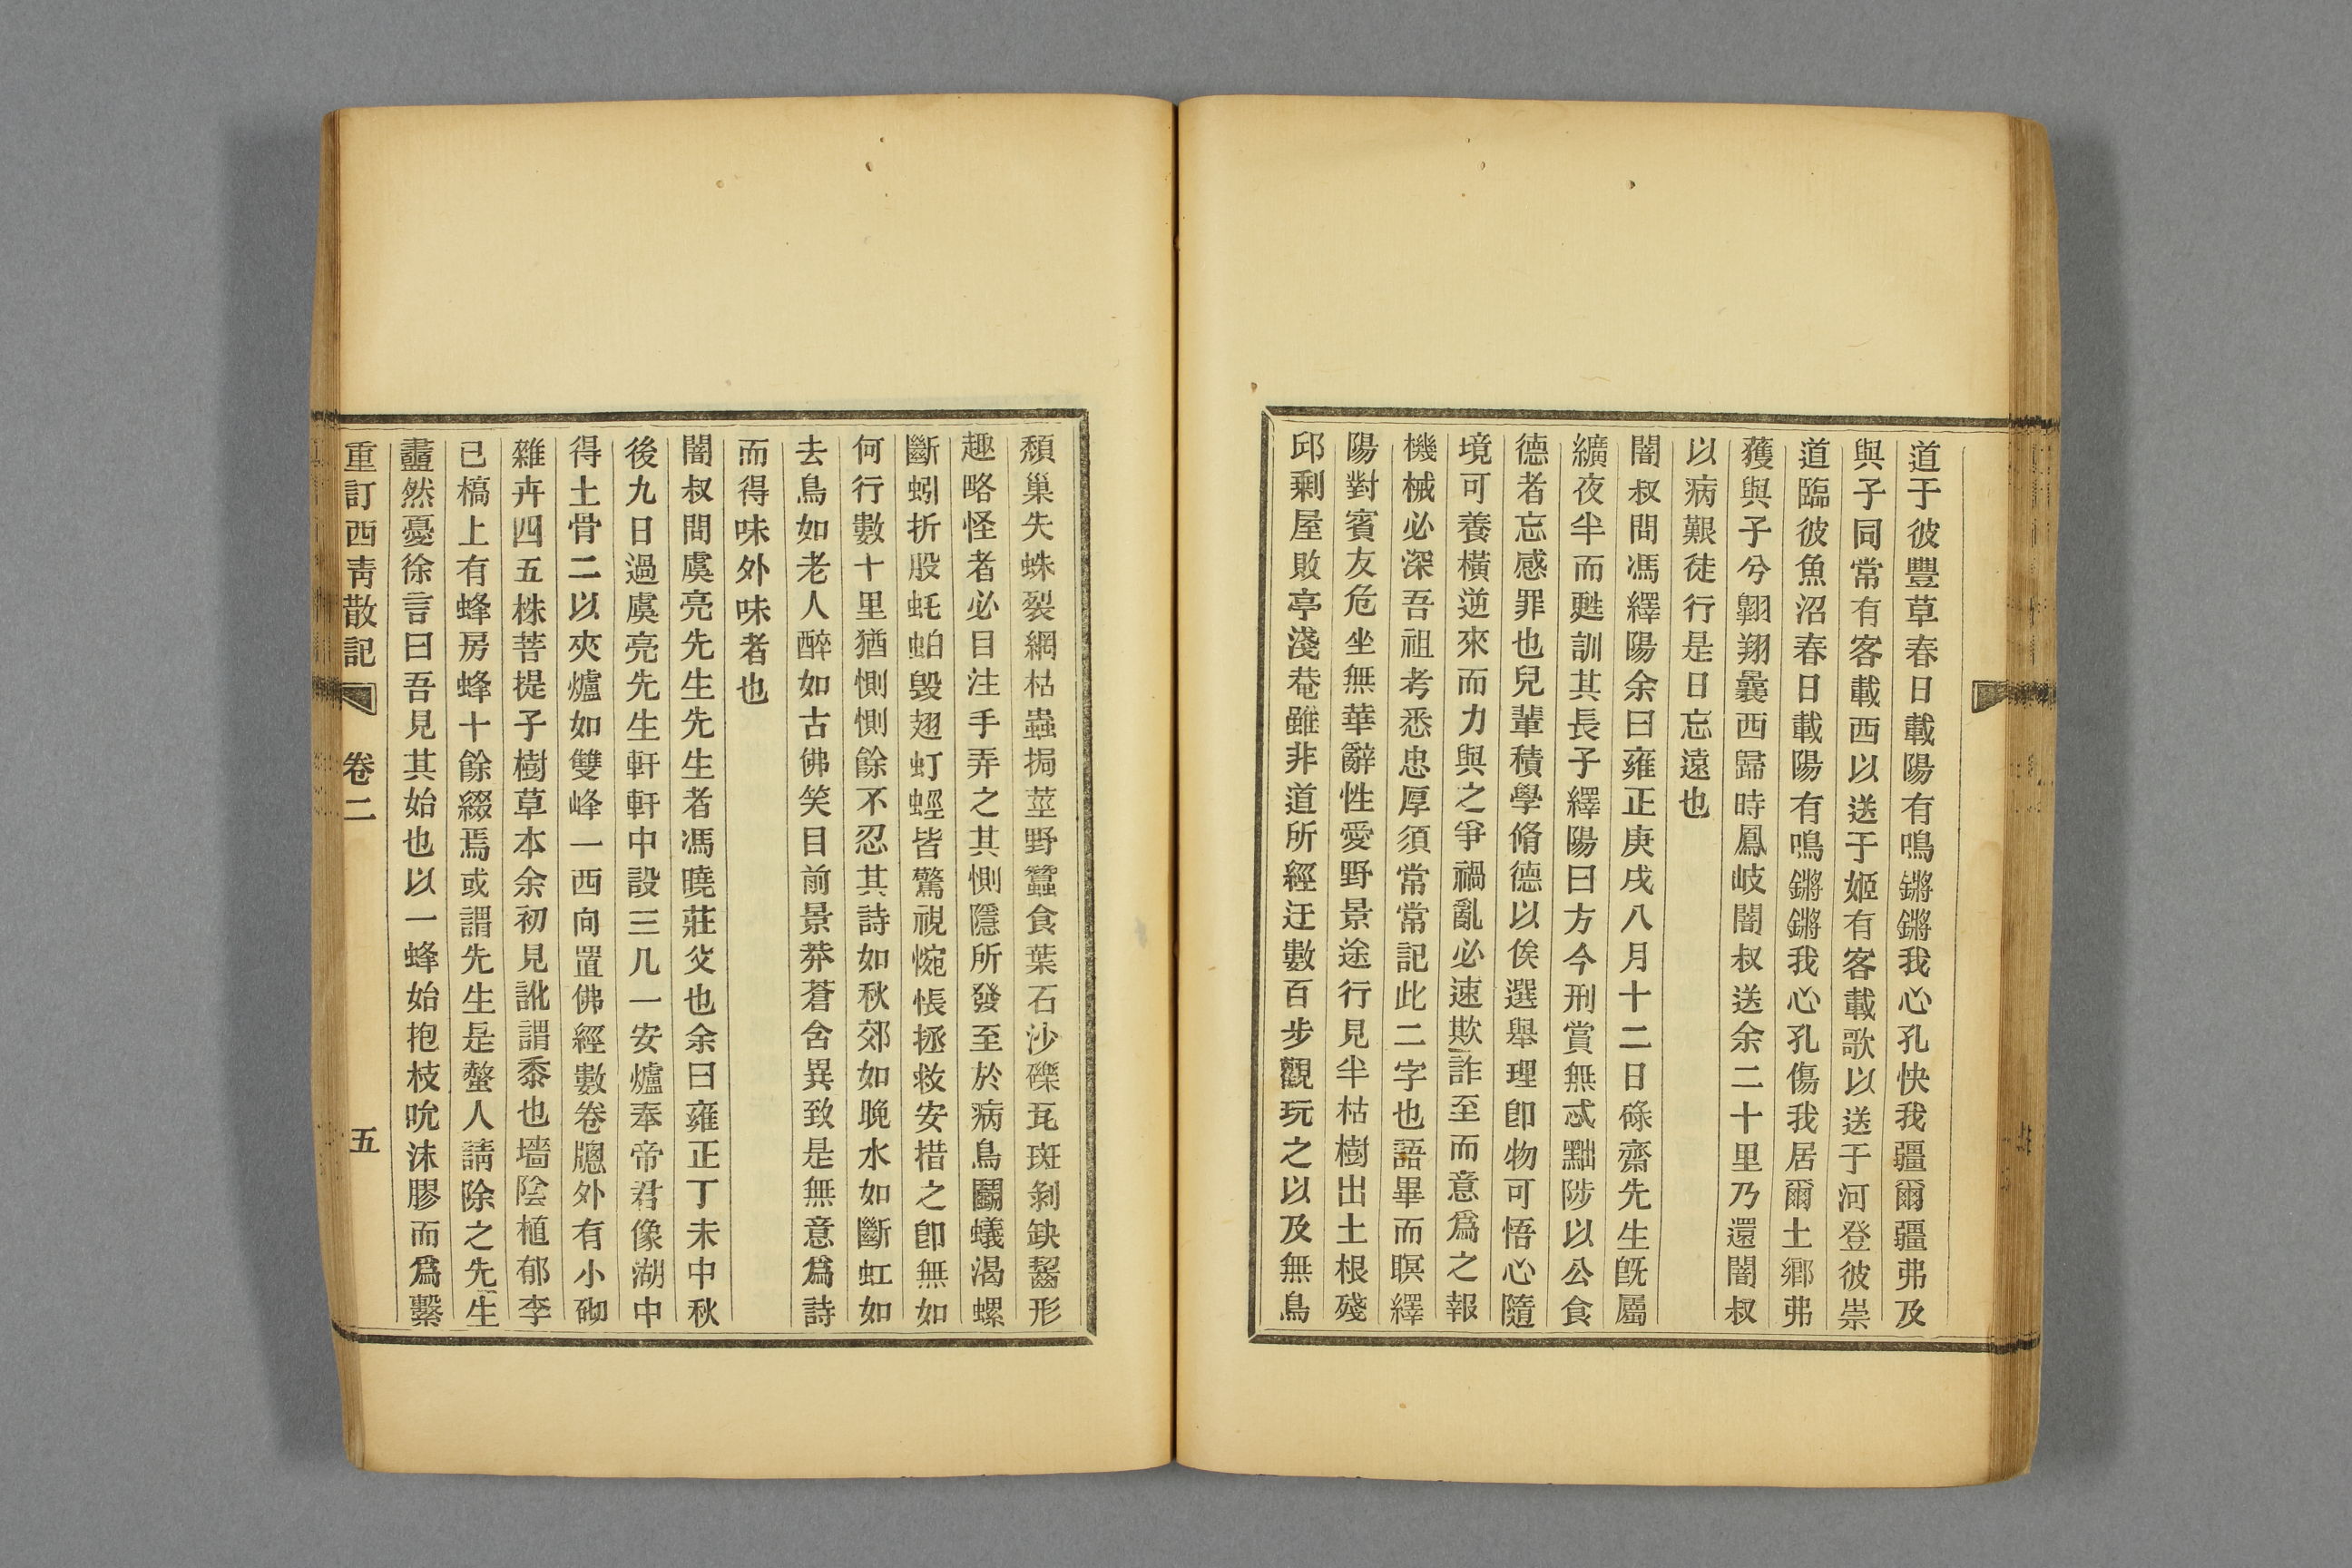 道于彼豐草春日載陽有鳴鏘鏘我心孔快我疆爾疆弗及
與子同常有客載西以送于姬有客載歌以送于河登彼崇
道臨彼魚沼春日載陽有鳴鏘鏘我心孔傷我居爾土鄉弗
獲與子兮翺翔曩西歸時鳳岐闇叔送余二十里乃還闇叔
以病艱徒行是日忘遠也
闇叔問馮繹陽余曰雍正庚戌八月十二日碌齋先生旣屬
纊夜半而甦訓其長子繹陽曰方今刑賞無忒黜陟以公食
德者忘感罪也兒輩積學脩德以俟選舉理卽物可悟心隨
境可養橫逆來而力與之爭禍亂必速欺詐至而意爲之報
機械必深吾祖考悉忠厚須常常記此二字也語畢而瞑繹
陽對賓友危坐無華辭性愛野景途行見半枯樹出土根殘
邱剩屋敗亭淺菴雖非道所經迂數百步觀玩之以及無鳥
頹巢失蛛裂網枯蟲挶莖野蠶食葉石沙礫瓦斑剝缺齧形
趣略怪者必目注手弄之其惻隱所發至於病鳥鬭蟻渴螺
斷蚓折股蚝蛨毀翅虰蛵皆驚視惋悵拯救安措之卽無如
何行數十里猶惻惻餘不忍其詩如秋郊如晚水如斷虹如
去鳥如老人醉如古佛笑目前景莽蒼舍異致是無意爲詩
而得味外味者也
闇叔問虞亮先生先生者馮曉莊父也余曰雍正丁未中秋
後九日過虞亮先生軒軒中設三几一安爐奉帝君像湖中
得土骨二以夾爐如雙峰一西向置佛經數卷牕外有小砌
雜卉四五株菩提子樹草本余初見訛謂黍也墻陰植郁李
已槁上有蜂房蜂十餘綴焉或謂先生是螫人請除之先生
衋然憂徐言曰吾見其始也以一蜂始抱枝吮沫膠而爲繫
重訂西靑散記 卷二 五